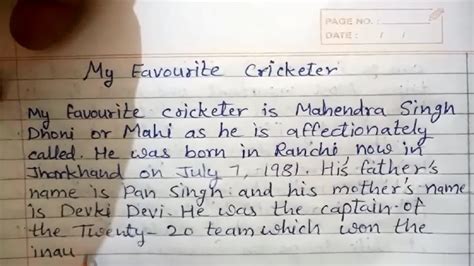 PAGE NO.:
DATE: / /
My Favourite Cricketer
My favourite cricketer is Mahendra Singh
Dhoni or Mahi as he is affectionately
called. He was born in Ranchi now in
Jharkhand on July 7, 1981. His father's
name is Pan Singh and his mother's name
is Devki Devi. He was the captain of
the Twenty-20 team which won the
inau